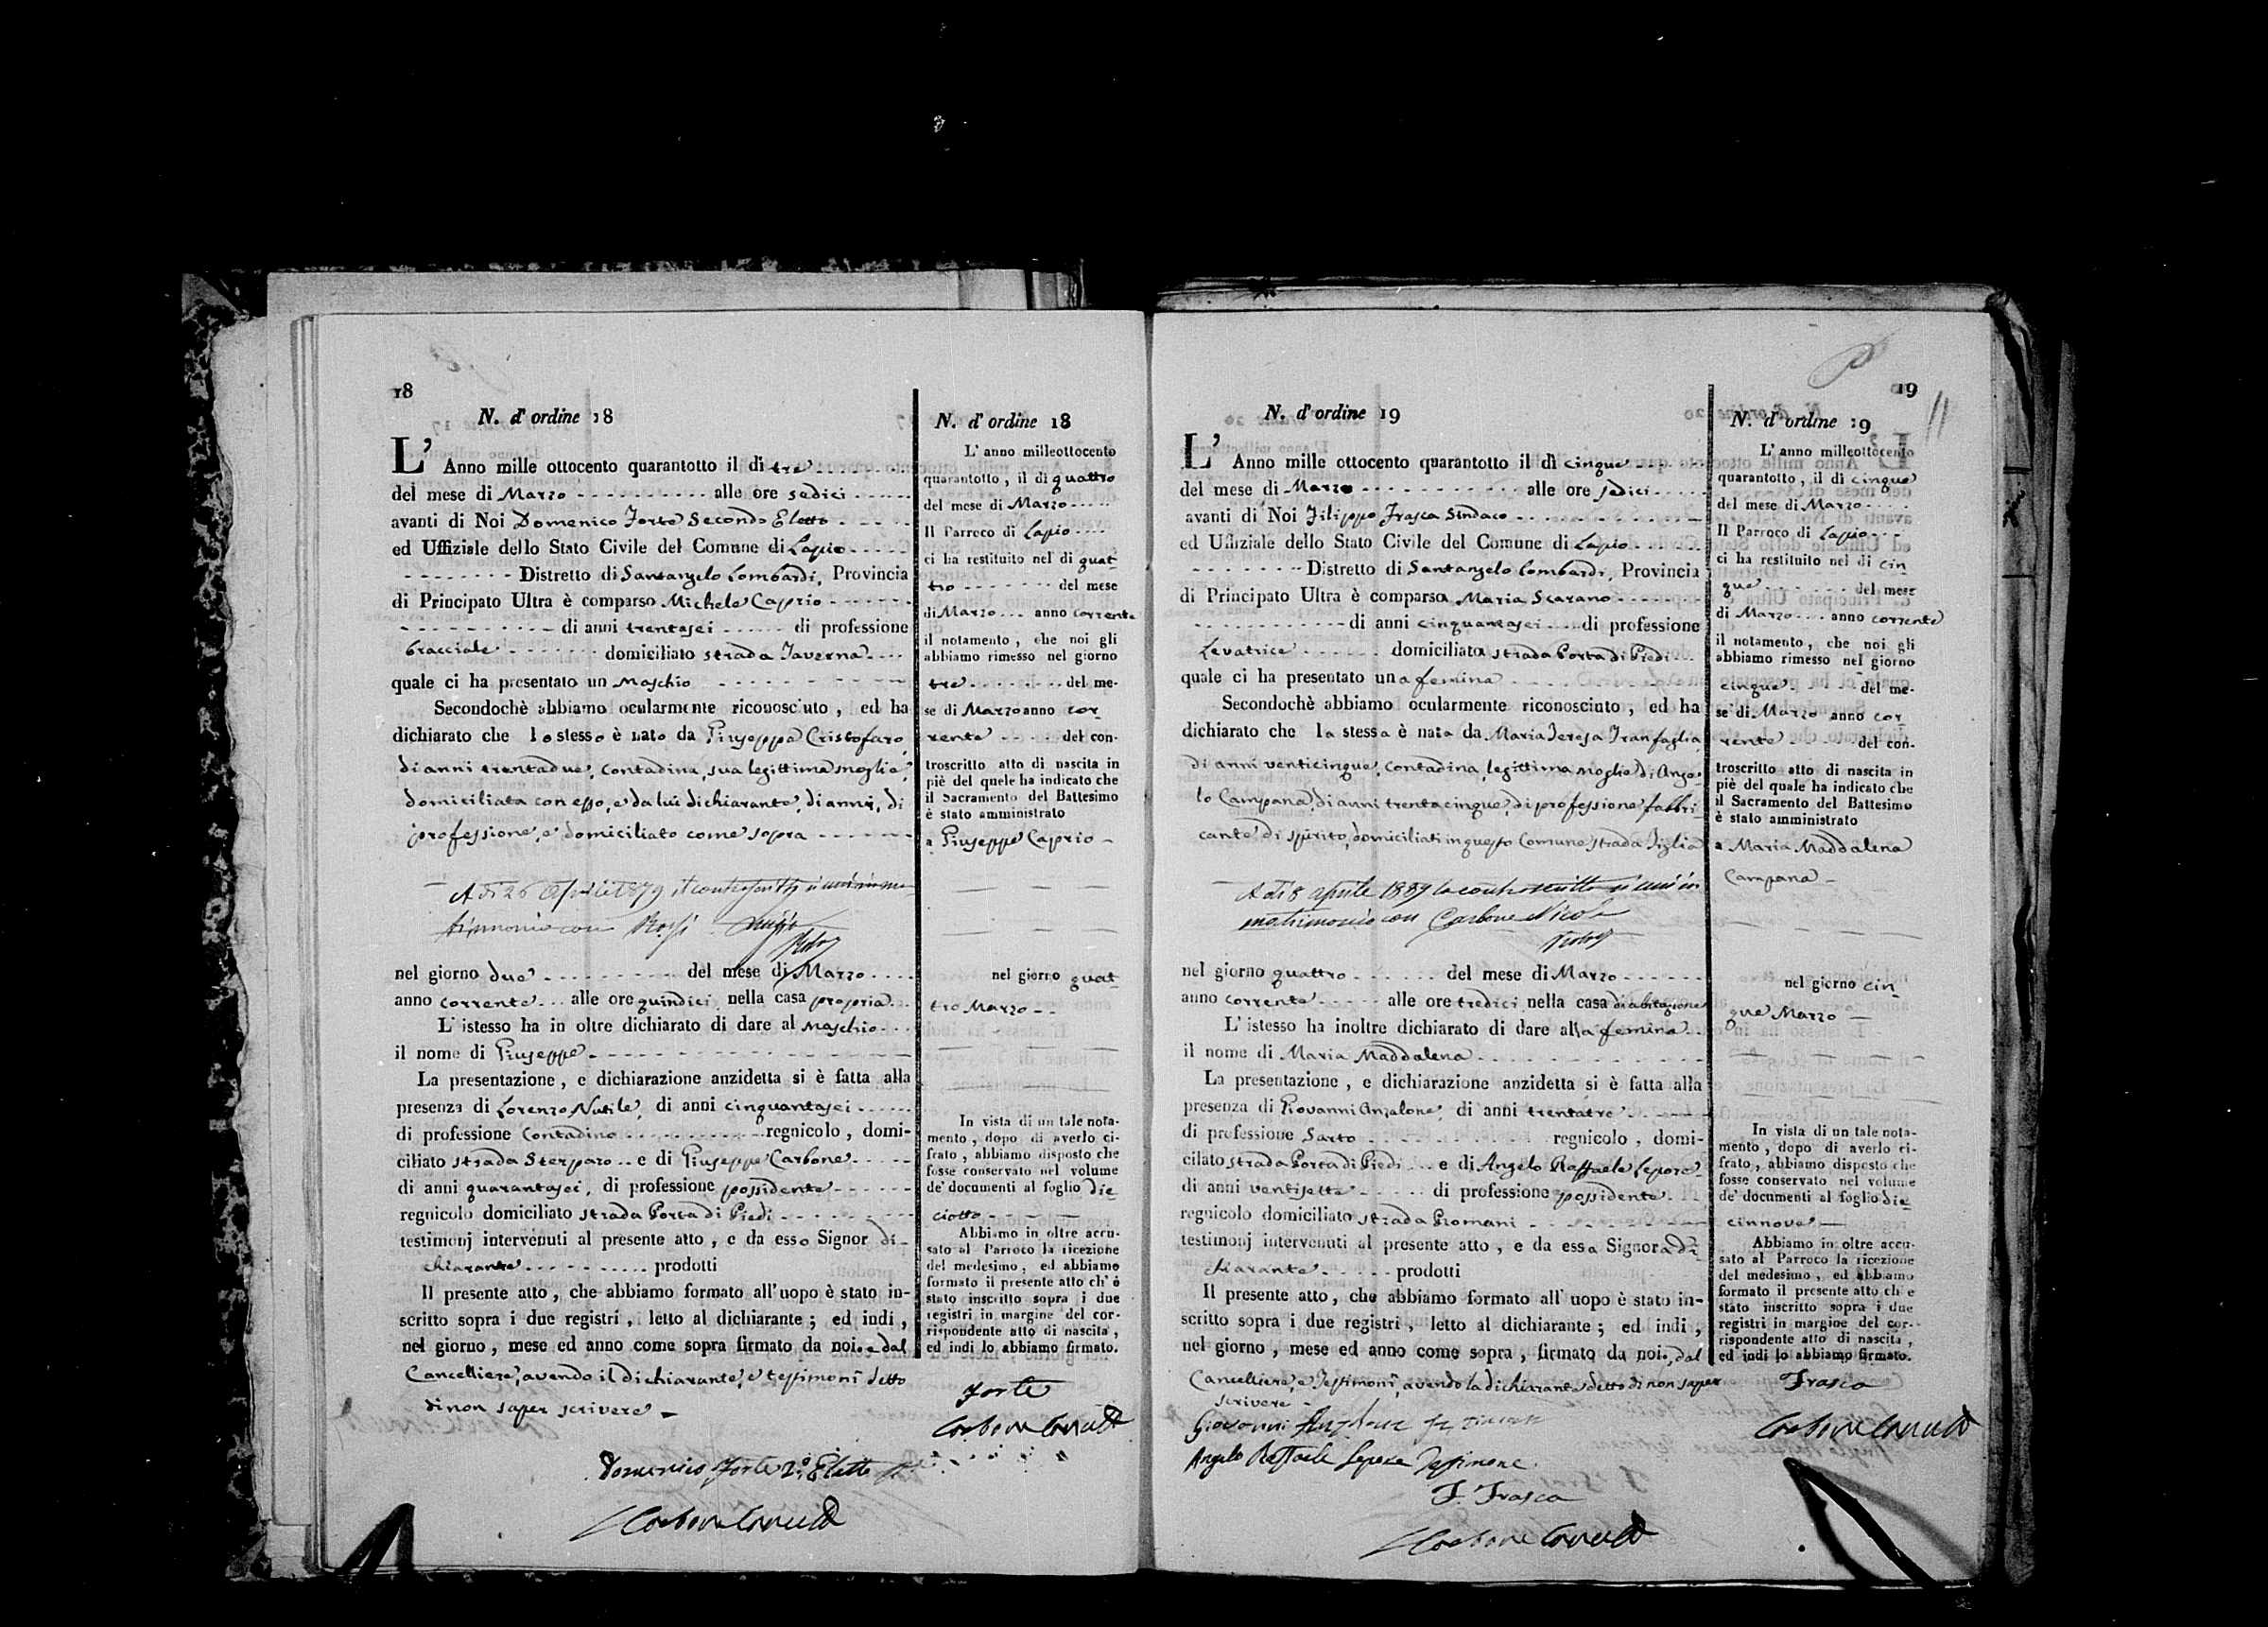 18
N. d' ordine 18
L' Anno mille ottocento quarantotto il dì tre
del mese di Marzo alle ore sedici
avanti di Noi Domenico Forte Secondo Eletto
ed Uffiziale dello Stato Civile del Comune di Lapio
Distretto di Santangelo Lombardi, Provincia
di Principato Ultra è comparso Michele Caprio
di anni trentasei di professione
bracciale domiciliato strada Taverna
quale ci ha presentato un Maschio
Secondochè abbiamo ocularmente riconosciuto, ed ha
dichiarato che lo stesso è nato da Giuseppa Cristofaro,
di anni trentadue, contadina, sua legittima moglie,
domiciliata con esso, e da lui dichiarante, di anni, di
professione, e domiciliato come sopra
A dì 26 Aprile 1879 il controscritto si unì in ma
trimonio con Rossi
nel giorno due del mese di Marzo
anno corrente alle ore quindici nella casa propria
L' istesso ha in oltre dichiarato di dare al Maschio
il nome di Giuseppe
La presentazione, e dichiarazione anzidetta si è fatta alla
presenza di Lorenzo Nutile, di anni cinquantasei
di professione Contadino regnicolo, domi-
ciliato strada Sterparo e di Giuseppe Carbone
di anni quarantasei, di professione possidente
regnicolo domiciliato strada Porta di Piedi
testimonj intervenuti al presente atto, e da esso Signor di-
chiarante prodotti
Il presente atto, che abbiamo formato all' uopo è stato in-
scritto sopra i due registri, letto al dichiarante; ed indi,
nel giorno, mese ed anno come sopra firmato da noi, e dal
Cancelliere, avendo il dichiarante, e testimonî detto
di non saper scrivere
Domenico Forte 2.º Eletto
N. d' ordine 18
L' anno milleottocento
quarantotto, il dì quattro
del mese di Marzo
Il Parroco di Lapio
ci ha restituito nel dì quat
tro del mese
di Marzo anno corrente
il notamento, che noi gli
abbiamo rimesso nel giorno
tre del me-
se di Marzo anno cor
rente del con-
troscritto atto di nascita in
piè del quele ha indicato che
il Sacramento del Battesimo
è stato amministrato
a Giuseppe Caprio
nel giorno quat
tro Marzo
In vista di un tale nota-
mento, dopo di averlo ci-
frato, abbiamo disposto che
fosse conservato nel volume
de' documenti al foglio die
ciotto
Abbiamo in oltre accu-
sato al Parroco la ricezione
del medesimo, ed abbiamo
formato il presente atto ch' è
stato inscritto sopra i due
registri in margine del cor-
rispondente atto di nascita,
ed indi lo abbiamo firmato.
Forte
19
11
N. d' ordine 19
L' Anno mille ottocento quarantotto il dì cinque
del mese di Marzo alle ore sedici
avanti di Noi Filippo Frasca Sindaco
ed Uffiziale dello Stato Civile del Comune di Lapio
Distretto di Santangelo Lombardi, Provincia
di Principato Ultra è comparsa Maria Scarano
di anni cinquantasei di professione
Levatrice domiciliata strada Porta di Piedi
quale ci ha presentato una femina
Secondochè abbiamo ocularmente riconosciuto, ed ha
dichiarato che la stessa è nata da Maria Teresa Tranfaglia,
di anni venticinque, contadina, legittima moglie di Ange-
lo Campana, di anni trentacinque, di professione fabbri-
cante di spirito, domiciliati in questo Comune strada Figlia
A dì 8 aprile 1889 la controscritta si unì in
matrimonio con Carbone Nicola
nel giorno quattro del mese di Marzo
anno corrente alle ore tredici nella casa di abitazione
L' istesso ha inoltre dichiarato di dare alla femina
il nome di Maria Maddalena
La presentazione, e dichiarazione anzidetta si è fatta alla
presenza di Giovanni Anzalone, di anni trentatre
di professione Sarto regnicolo, domi-
cilato strada Porta di Piedi e di Angelo Raffaele Lepore
di anni ventisette di professione possidente
regnicolo domiciliato strada Gromani
testimonj intervenuti al presente atto, e da essa Signora di
chiarante prodotti
Il presente atto, che abbiamo formato all' uopo è stato in-
scritto sopra i due registri, letto al dichiarante; ed indi,
nel giorno, mese ed anno come sopra, firmato da noi, dal
Cancelliere, e Testimonî, avendo la dichiarante detto di non saper
scrivere
Angelo Raffaele Lepore Testimone
F. Frasca
N. d' ordine 19
L' anno milleottocento
quarantotto, il dì cinque
del mese di Marzo
Il Parroco di Lapio
ci ha restituito nel dì cin
que del mese
di Marzo anno corrente
il notamento, che noi gli
abbiamo rimesso nel giorno
cinque del me-
se di Marzo anno cor
rente del con-
troscritto atto di nascita in
piè del quale ha indicato che
il Sacramento del Battesimo
è stato amministrato
a Maria Maddalena
Campana
nel giorno cin
que Marzo
In vista di un tale nota-
mento, dopo di averlo ci-
frato, abbiamo disposto che
fosse conservato nel volume
de' documenti al foglio die
cinnove
Abbiamo in oltre accu-
sato al Parroco la ricezione
del medesimo, ed abbiamo
formato il presente atto ch' e
stato inscritto sopra i due
registri in margine del cor-
rispondente atto di nascita,
ed indi lo abbiamo firmato.
Frasca